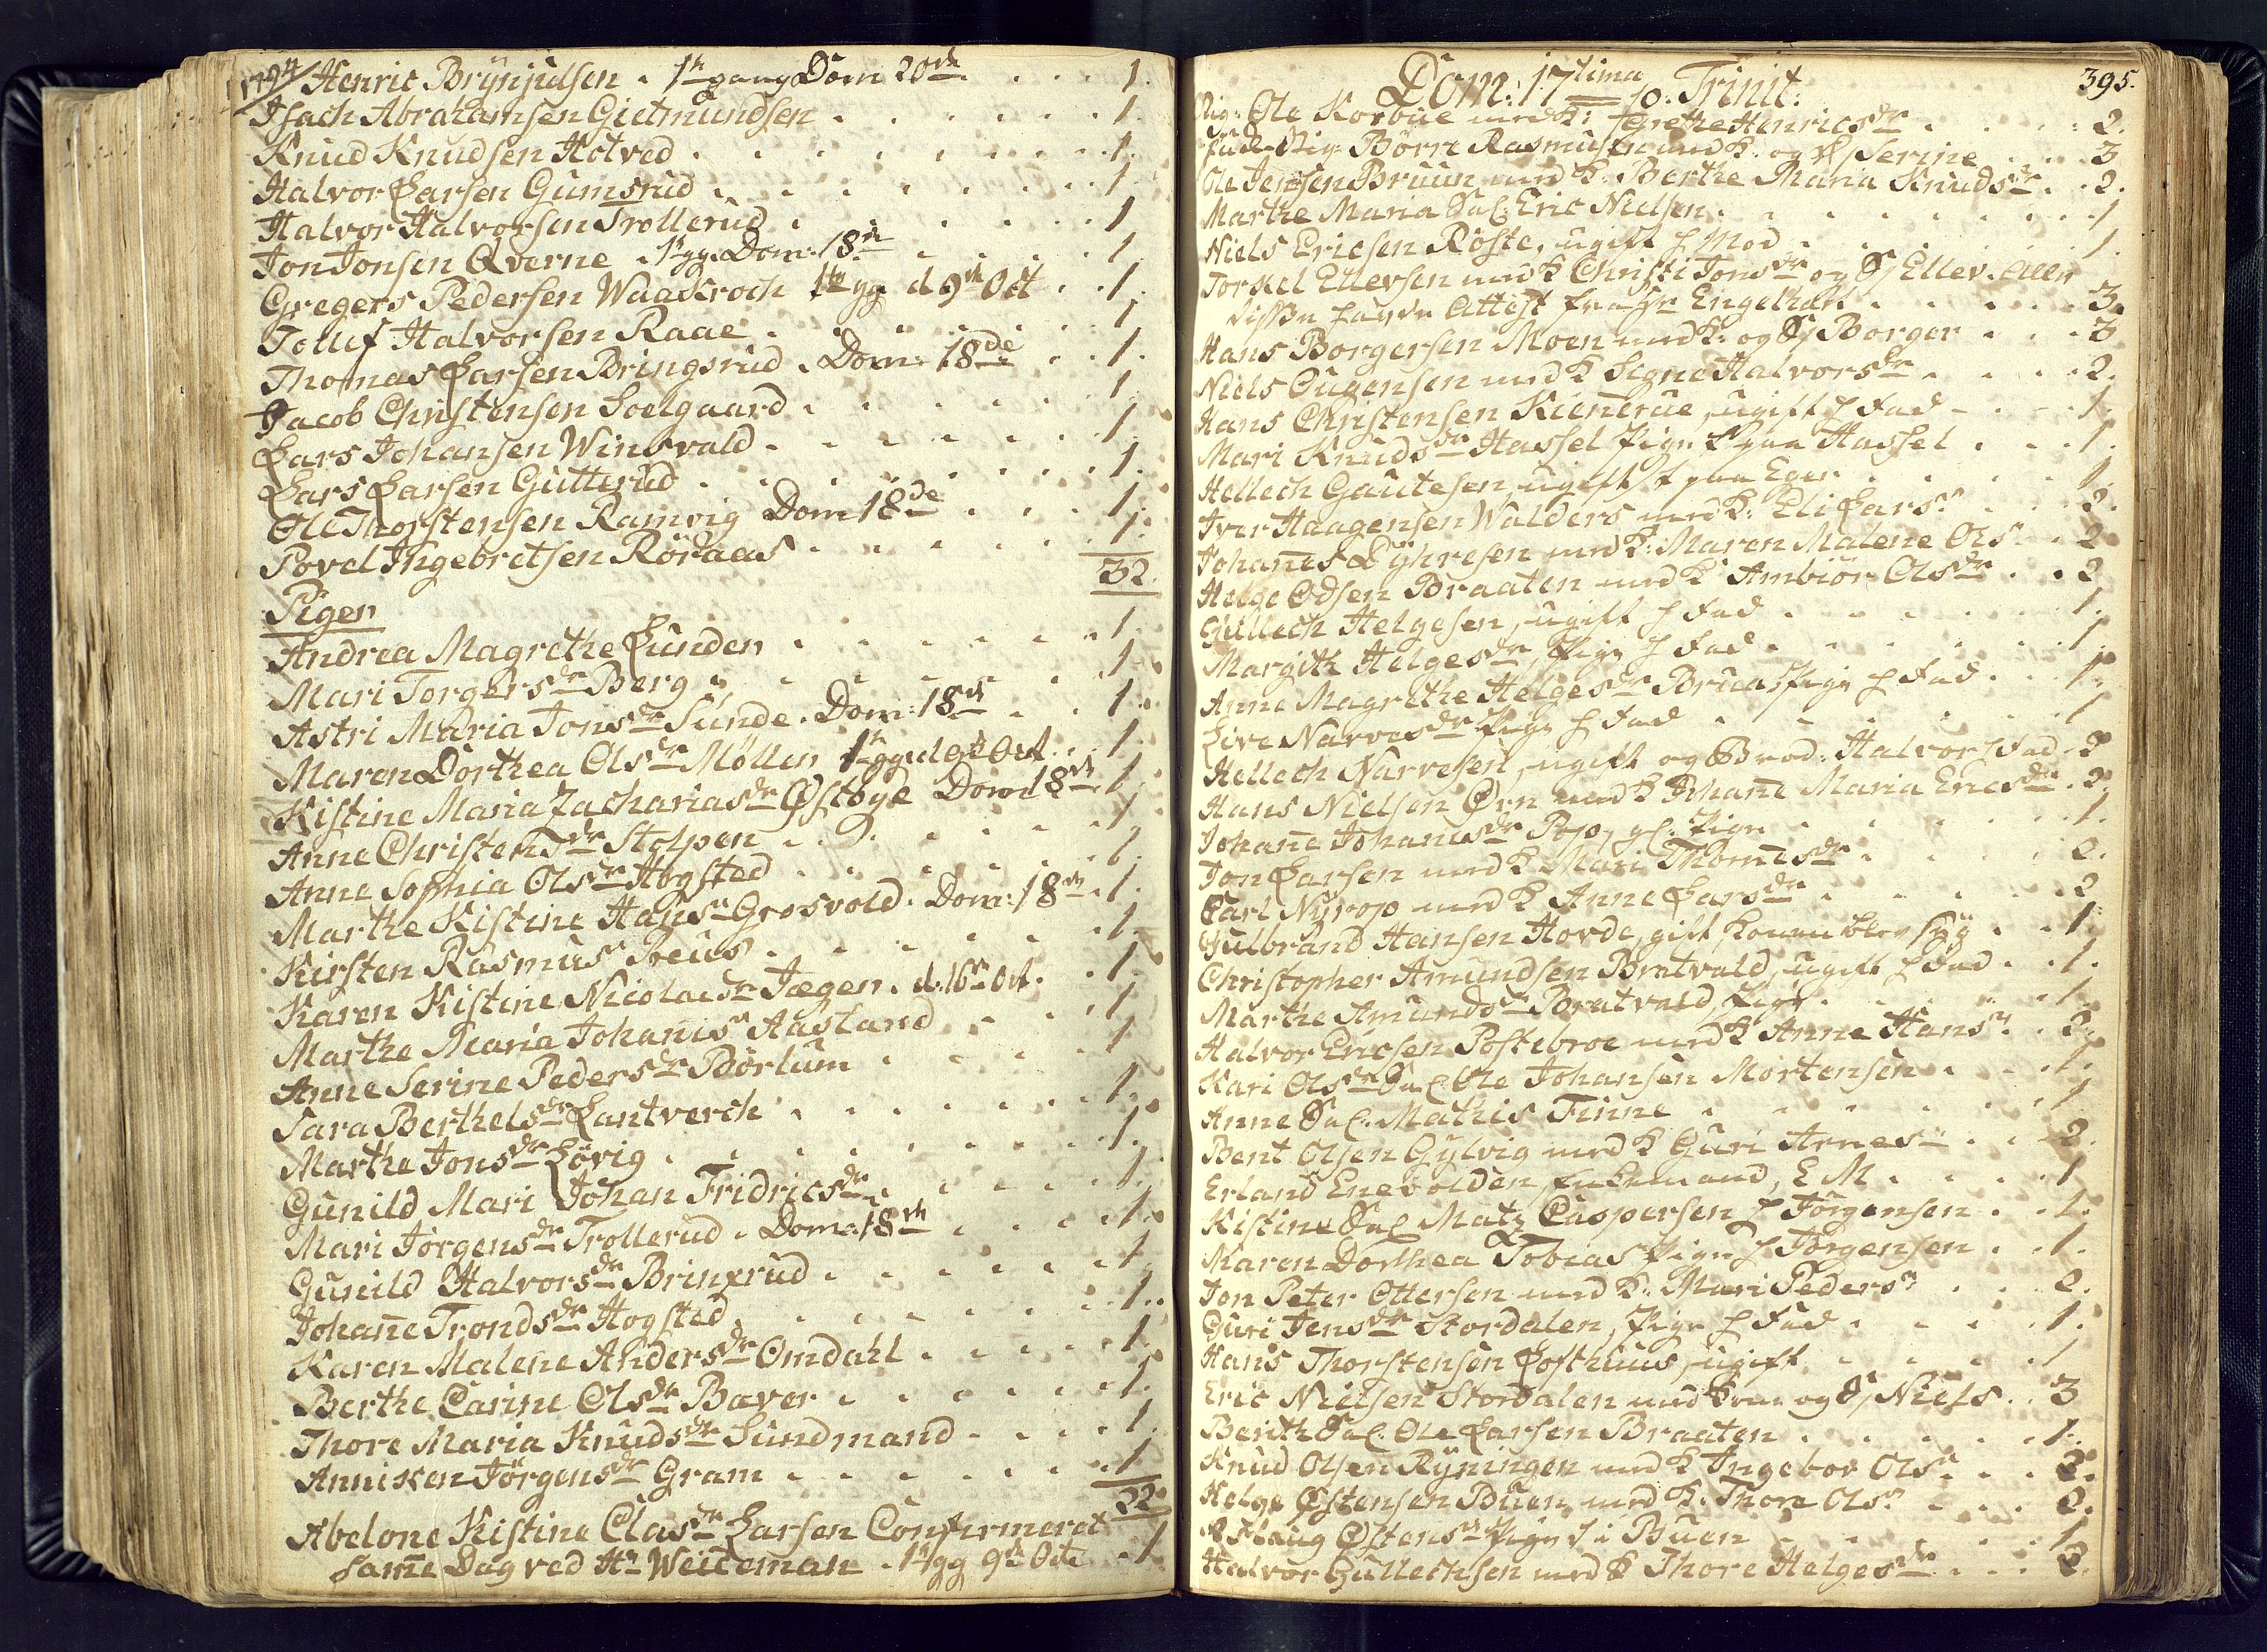 1794
Henric Brynjulsen . 1ste gang Dom 20de . . . 1.
Isach Abrahamsen Gietmundsen . . . . . . 1.
Knud Knudsen Hotved . . . . . . 1.
Halvor Larsen Gumsrud . . . . . . 1
Halvor Halvorsen Trollerud . . . . . . 1
Jon Jonsen Qverne . 1ste gg. Dom: 18de . . . 1
Gregers Pedersen Waakroch 1ste gg d 9de Oct . . 1.
Tollef Halvorsen Raae . . . . . . 1
Thomas Larsen Bringsrud . Dom: 18de . . 1.
Jacob Christensen Soelgaard . . . . . . 1
Lars Johansen Winsvald . . . . . . 1
Lars Larsen Gutterud . . . . . . 1.
Ole Thorstensen Ramvig Dom 18de . . . 1.
Povel Ingebretsen Röraas . . . . . . 1.
32.
Piger
Andrea Magrethe Lunden . . . . . . 1.
Mari Torgersdr Berg . . . . . . 1.
Astri Maria Jonsdr Sunde . Dom: 18de . . 1.
Maren Dorthea Olsdr Möllen 1ste gg d 9de Oct . . 1.
Kistine Maria Zachariasdr Ostöye Dom 18de . 1.
Anne Christensdr Stolpen . . . . . . 1
Anne Sophia Olsdr Hogsted . . . . . . 1.
Marthe Kistine Hansdr Grosvold . Dom: 18de . 1.
Kirsten Rasmusdr Preus . . . . . . 1.
Karen Kistine Nicolaisdr Jegen . d. 16de Oct . . 1.
Marthe Maria Johanisdr Aasland . . . . 1
Anne Serine Pedersdr Börlum . . . . . 1
Sara Berthelsdr Lantverch . . . . . . 1.
Marthe Jonsdr Lövig . . . . . . 1.
Gunild Mari Johan Fridricsdr . . . . . 1.
Mari Jörgensdr Trollerud . Dom: 18de . . . 1.
Gunild Halvorsdr Brinxrud . . . . . . 1.
Johane Trondsdr Hogsted . . . . . . 1.
Karen Malene Andersdr Omdahl . . . . . 1.
Berthe Carine Olsdr Bæver . . . . . . 1.
Thore Maria Knudsdr Sundmand . . . . 1.
Anniken Jörgensdr Gram . . . . . . 1
22.
Abelone Kistine Clasdr Larsen Confirmeret
samme Dag ved Hr Weideman . 1ste gg 9de Octr . 1
395.
Dom: 17tima p. Trinit:
Sig: Ole Korbue med K: Grethe Henricsdr . . . . 2.
Sig: Börre Rasmusen med K. og D/ Serine . . . 3
Ole Jensen Bruun med K. Berthe Maria Knudsdr . . 2.
Marthe Maria Sal. Eric Nielsen . . . . . . 1
Niels Ericsen Röste, ugift h Mod . . . . . 1.
Torkel Ellevsen med K Christi Jonsdr og S/ Ellev. Alle
disse havde Attest fra Hr Engelhart . . . . . 3.
Hans Borgersen Moen med K: og S/ Borger . . . 3
Niels Gugensen med K Signe Halvorsdr . . . . 2.
Hans Christensen Kiennerue, ugift h Fad . . . 1.
Mari Knudsdr Hassel Pige paa Hassel . . . 1.
Hellech Gautesen, ugift paa Eger . . . . 1.
Iver Haagensen Walders med K: Eli Larsdr . . 2.
Johanes Dyhresen med K: Maren Malene Olsdr . 2
Helge Odsen Braaten med K Ambiör Olsdr . . 2
Gullech Helgesen, ugift h Fad . . . . . 1.
Margith Helgesdr, Pige h Fad . . . . . . 1.
Anne Magrethe Helgesdr Bruaas Pige h Fad . . 1.
Live Narvesdr Pige h Fad . . . . . . 1
Hellech Narvesen, ugift og Brod. Halvor h Fad . 2
Hans Nielsen Örn med K Johane Maria Ericsdr . 2.
Johane Johanesdr Pop, gl. Pige . . . . . 1.
Jon Larsen med K Mari Thomesdr . . . . 2.
Carl Nyrop med K Anne Larsdr . . . . . 2
Gulbrand Hansen Hovde, gift, Konen blev syg . . 1.
Christopher Amundsen Bratvald, ugift h Fad . . 1.
Marthe Amundsdr Bratvald, Pige . . . . . 1.
Halvor Ericsen Postebroe med K Anne Hansdr . . 2.
Kari Olsdr Sal. Ole Johansen Mortensen . . . 1.
Anne Sal. Mathis Finne . . . . . . 1
Bent Olsen Gylvig med K Guri Arnesdr . . . 2.
Erland Enevolden, Enkemand, E M . . . . 1
Kistine Sal Matz Caspersen h Jörgensen . . 1.
Maren Dorthea Tobias Pige h Jörgensen . . 1.
Jon Peter Ottersen med K: Mari Pedersdr . . . 2.
Guri Jensdr Stordalen, Pige h Fad . . . . 1.
Hans Thorstensen Losthuus, ugift . . . . . 1
Eric Nielsen Stordalen med Kone og S/ Niels . . 3
Berith Sal. Ole Larsen Braaten . . . . . 1.
Knud Olsen Ryningen med K Ingebor Olsdr . . . 2.
Helge Östensen Buen med K. Thore Olsdr . . . 2.
Aslaug Östensdr Pige i Buen . . . . . 1
Halvor Gullechsen med K Thore Helgesdr . . . 2.